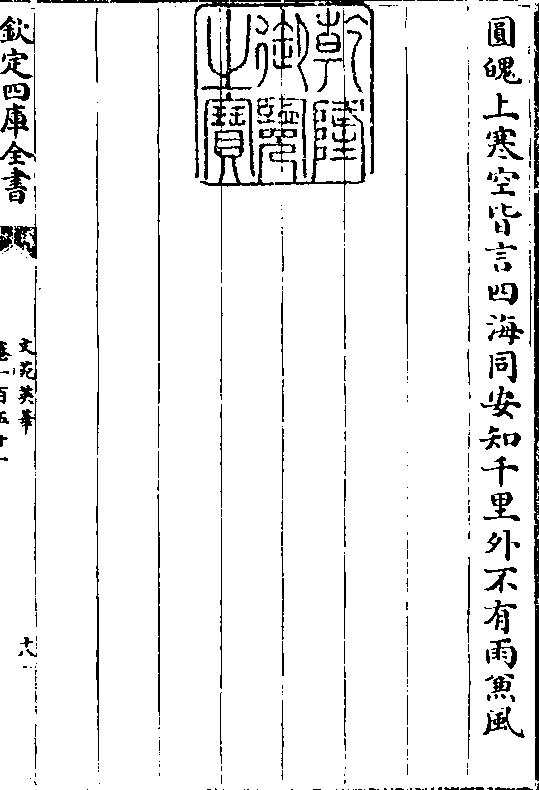 圓魄上寒空皆言四海同安知千里外不有雨兼風
乾隆御覽之寶
欽定四庫全書
文苑英華
卷一百五十一
十八